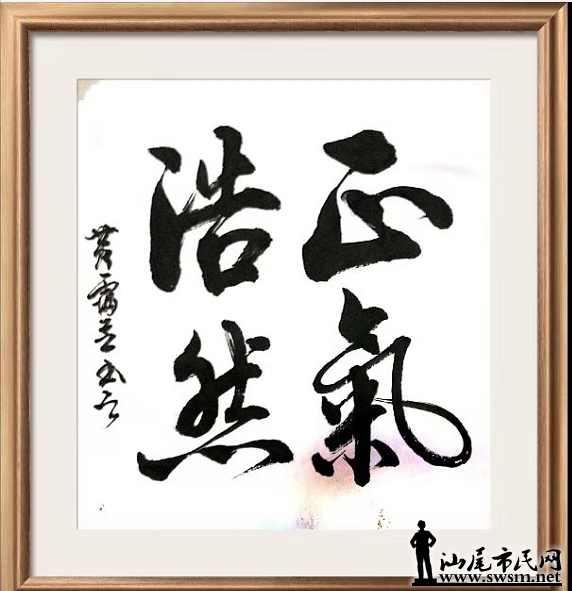 正氣
浩然
汕尾市民网
www.swsm.net